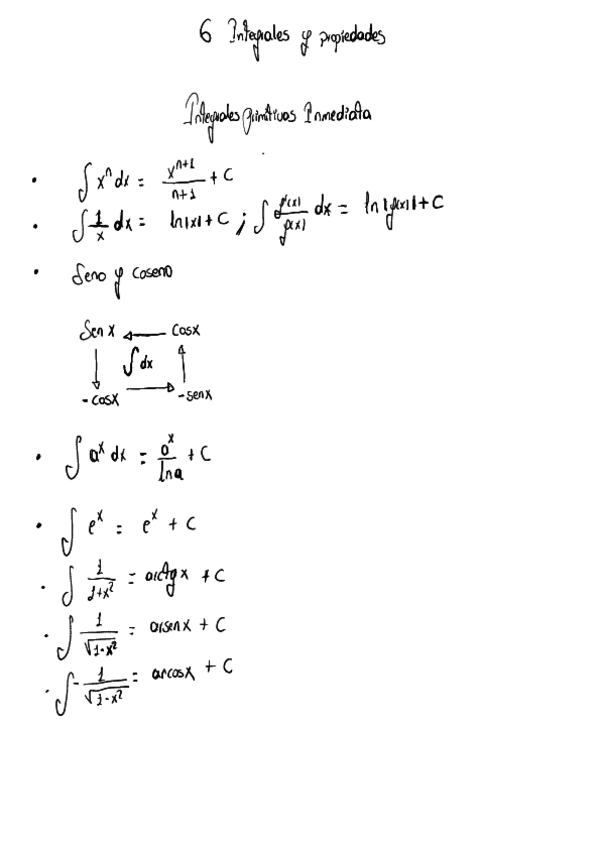 6 Integrales y propiedades
Integrales primitivas Inmediata
• ∫ xⁿ dx = xⁿ⁺¹/(n+1) + C
• ∫ 1/x dx = ln|x| + C ; ∫ g'(x)/g(x) dx = ln|g(x)| + C
• Seno y coseno
Sen x ← cosx
↓ ∫ dx ↑
-cosx → -senx
• ∫ aˣ dx = aˣ/ln a + C
• ∫ eˣ = eˣ + C
• ∫ 1/(1+x²) = arctg x + C
• ∫ 1/√(1-x²) = arsenx + C
• ∫ -1/√(1-x²) = arcosx + C